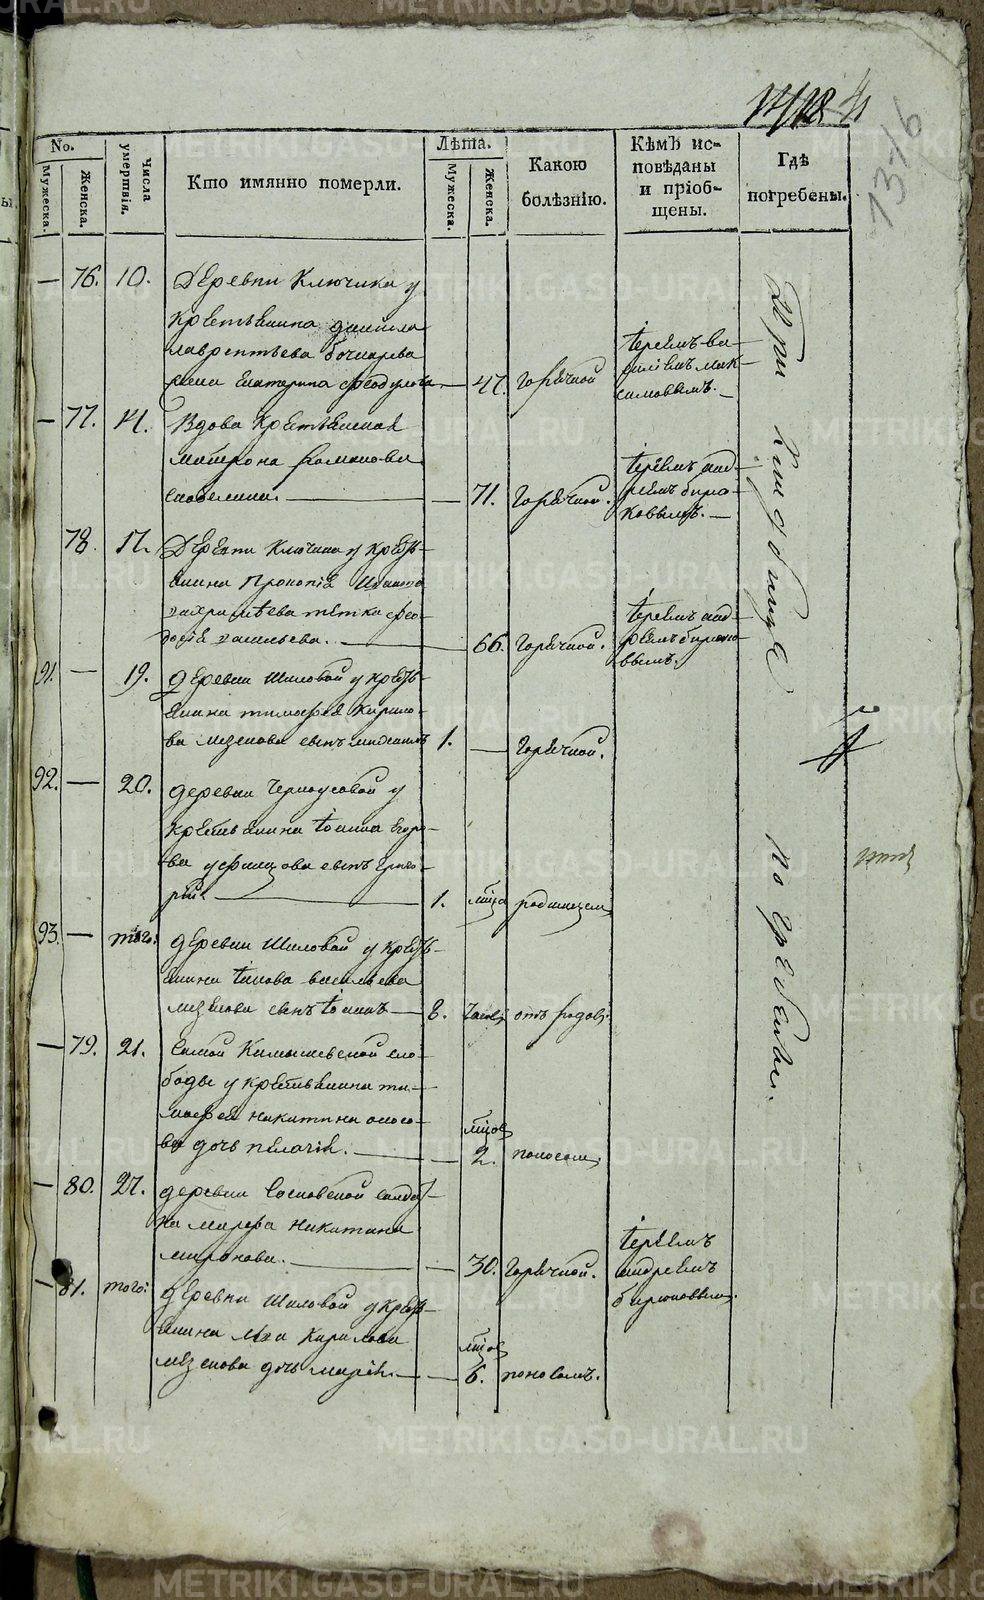 No.
Мужеска.
Женска.
Числа умертвія.
Кто имянно померли.
Лѣта.
Мужеска.
Женска.
Какою болѣзнію.
Кѣмъ исповѣданы и пріобщены.
Гдѣ погребены.
— 76. 10. Деревни Ключика у
крестьянина
лаврентьева бочкарева
жена Екатерина Феодулова — 47. горячкой
Іереемъ Ва-
силіемъ Мак-
симовымъ. —
— 77. 14. Вдова Крестьянская
матрона Романова
— 71. Горячкой.
Іереемъ Анд-
реемъ бирю-
ковымъ. —
78. 17. Деревни Ключика у крестья-
янина Прокопія Иванова
тетка Фео-
досія васильева. — 66. Горячкой.
Іереемъ Анд-
реемъ бирюко-
вымъ.
91. — 19. деревни Шиловой у кресть-
янина тимофея Кирило-
ва мезенова сынъ 1. — Горячкой.
92. — 20. деревни Черноусовой у
крестьянина Іоанна Егоро-
ва сынъ Григо-
рій — 1. мѣсяца родимцемъ
93. — того: деревни Шиловой у кресть-
янина Іакова васильева
мезенова сынъ Іоаннъ — 8. часовъ отъ родовъ.
— 79. 21. Самой Камышевской сло-
боды у крестьянина ти-
мофея никитина
дочь пелагія. — мѣсяцов 2. поносомъ
— 80. 27. деревни Сосновской солдат-
ка марѳа никитина
миронова. — 30. Горячкой.
Іереемъ
андреемъ
бирюковымъ.
— 81. того: деревни Шиловой у кресть-
янина Льва Кирилова
мезенова дочь марія. — мѣсяцов 6. поносомъ.
При кладбищѣ погребены.